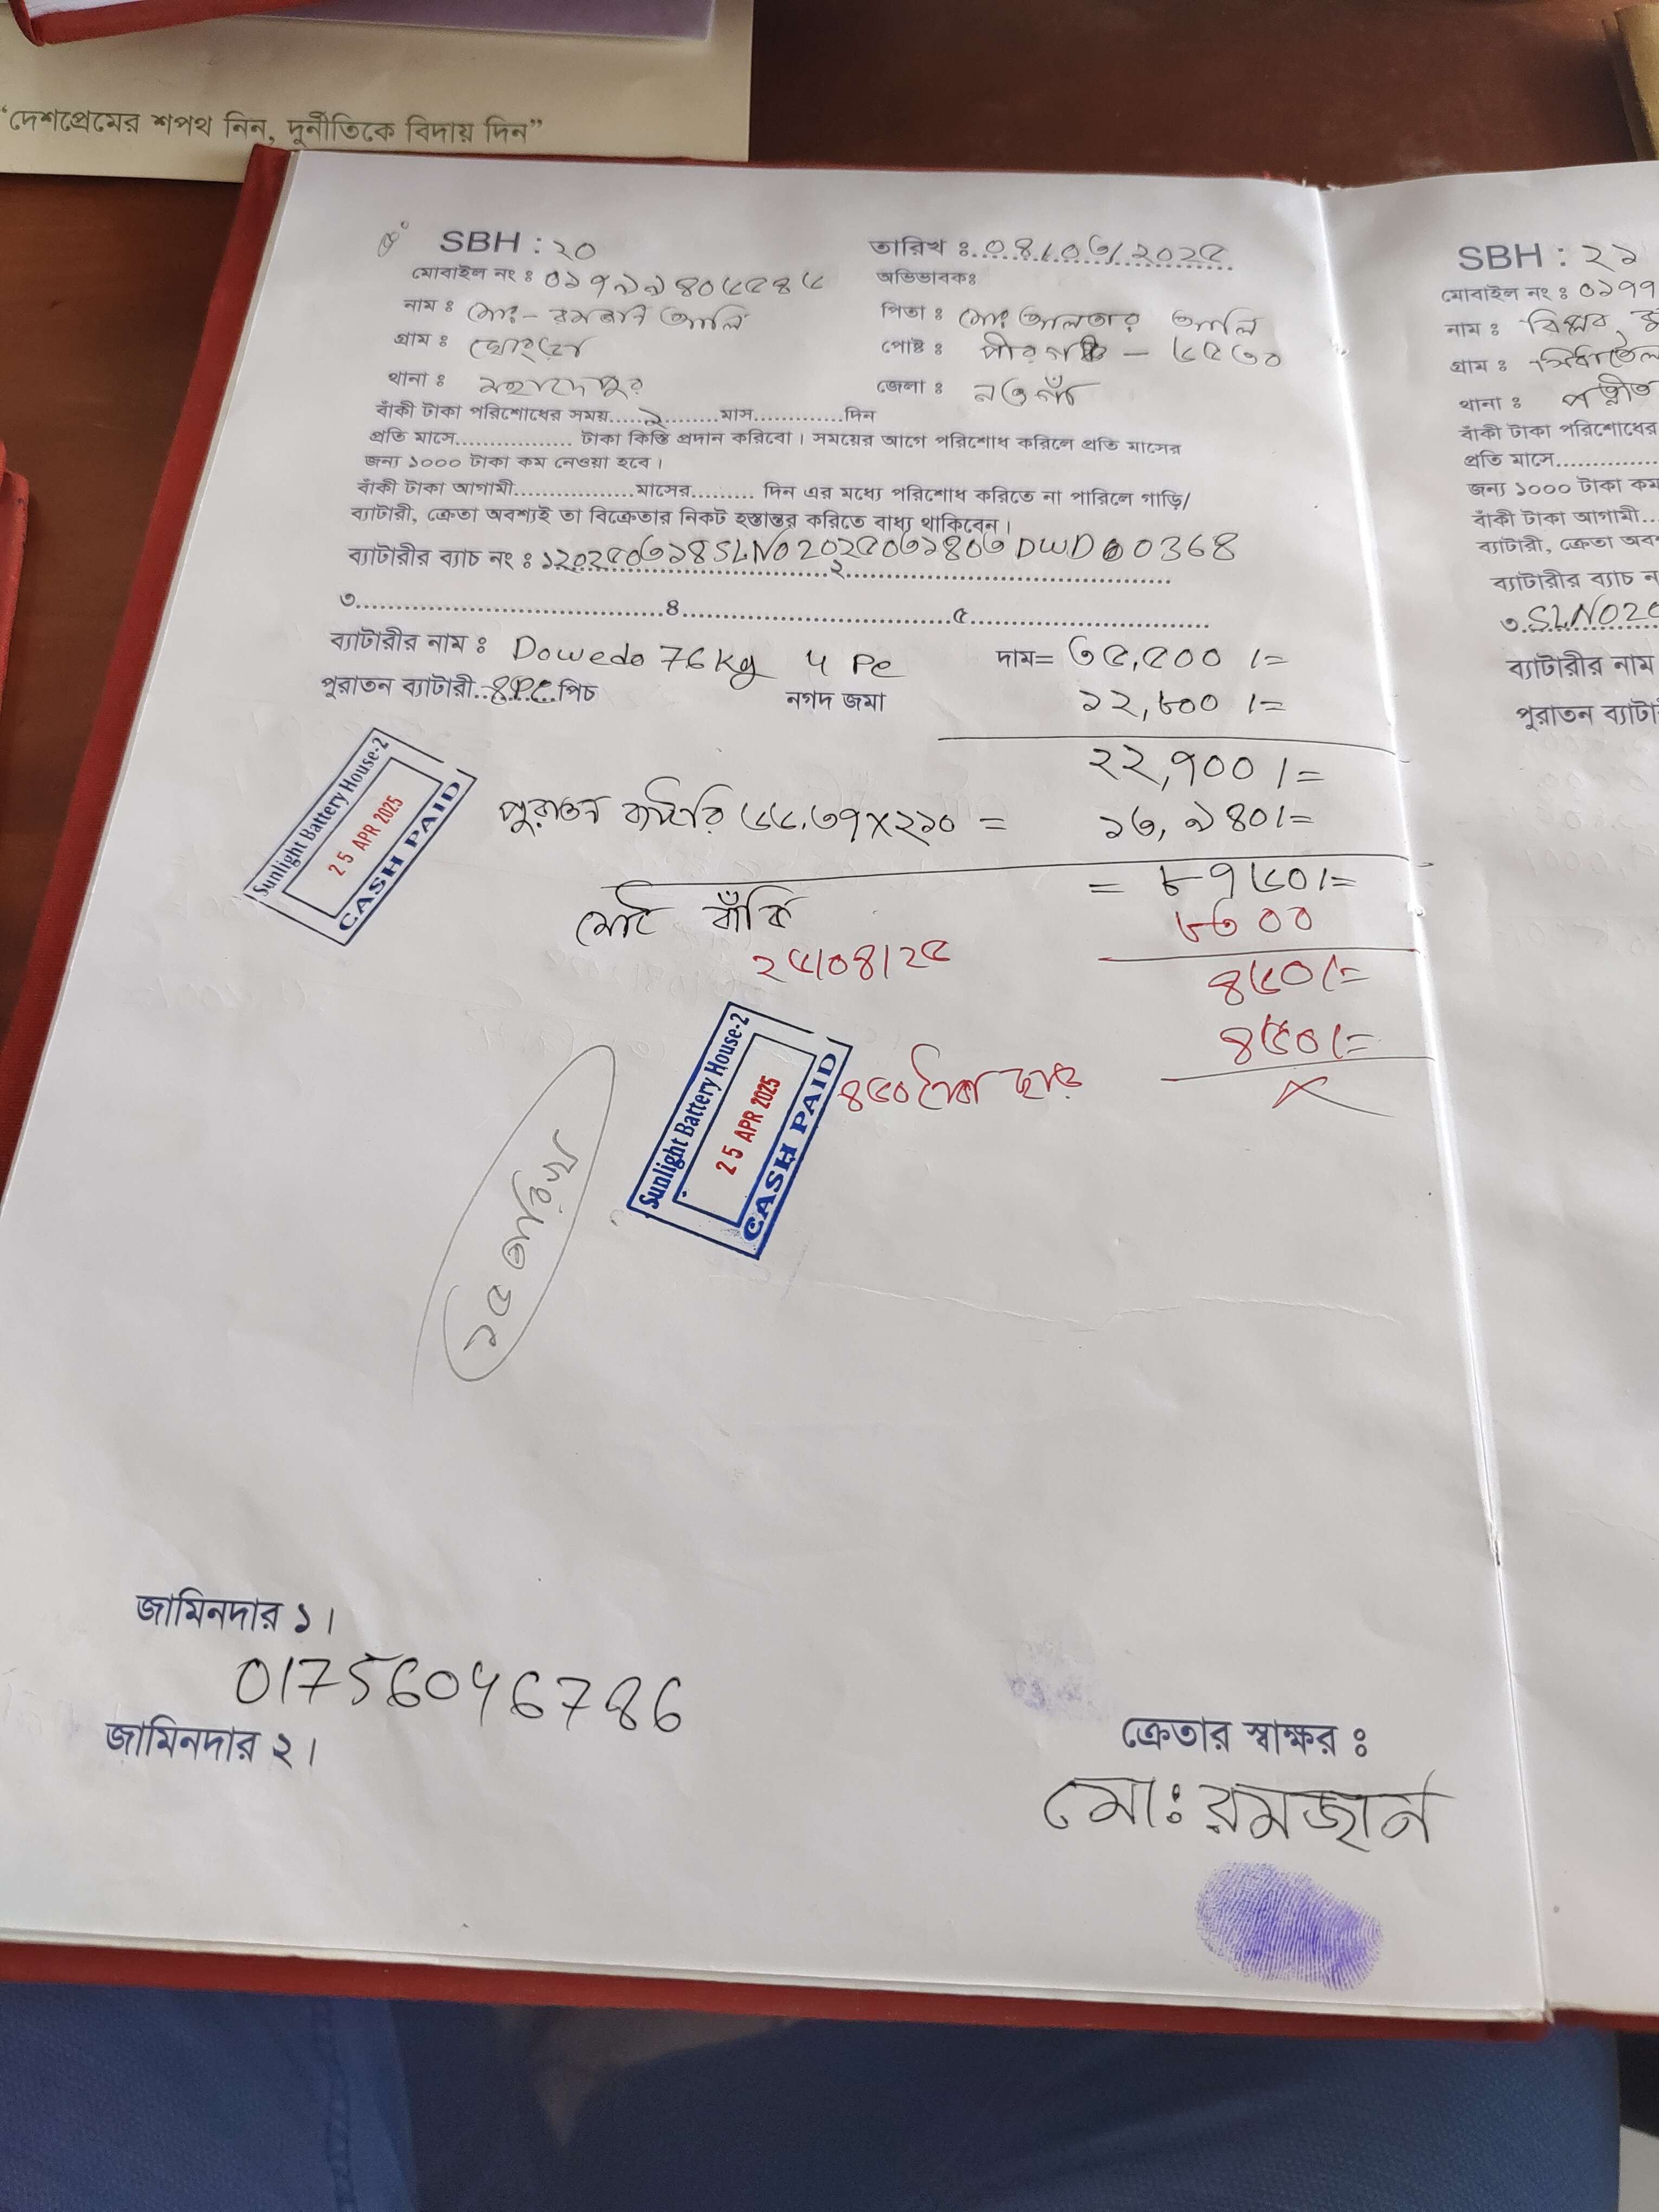 “দেশপ্রেমের শপথ নিন, দুর্নীতিকে বিদায় দিন”
SBH : ২০
তারিখ ঃ ০৪/০৩/২০২৫
মোবাইল নং ঃ
অভিভাবকঃ
নাম ঃ মোঃ - রমজান আলি
পিতা ঃ মোঃ আলতার আলি
গ্রাম ঃ
পোষ্ট ঃ পীরগঞ্জ - ৬৫৩০
থানা ঃ মহাদেবপুর
জেলা ঃ নওগাঁ
বাঁকী টাকা পরিশোধের সময়.....১.......মাস.............দিন
প্রতি মাসে................ টাকা কিস্তি প্রদান করিবো। সময়ের আগে পরিশোধ করিলে প্রতি মাসের
জন্য ১০০০ টাকা কম নেওয়া হবে।
বাঁকী টাকা আগামী.................মাসের......... দিন এর মধ্যে পরিশোধ করিতে না পারিলে গাড়ি/
ব্যাটারী, ক্রেতা অবশ্যই তা বিক্রেতার নিকট হস্তান্তর করিতে বাধ্য থাকিবেন।
ব্যাটারীর ব্যাচ নং ঃ ১
২
৩...........................................৪.......................................৫...................................
ব্যাটারীর নাম ঃ Dowedo 76 Kg 4 Pc দাম= ৩৫,৫০০/=
পুরাতন ব্যাটারী..৪Pc..পিচ নগদ জমা ১২,৮০০/=
২২,৭০০/=
পুরাতন ব্যাটারি ৬৬.৩৭×২১০ = ১৩,৯৪০/=
= ৮৭৬০/=
মোট বাঁকি
৮৩০০
২৫/০৪/২৫
৪৬০/=
৪৬০/=
৪৬০ টাকা ছাড়
Sunlight Battery House-2
25 APR 2025
CASH PAID
Sunlight Battery House-2
25 APR 2025
CASH PAID
১৫ তারিখ
জামিনদার ১।
01756046786
জামিনদার ২।
ক্রেতার স্বাক্ষর ঃ
মোঃ রমজান
SBH : ২১
মোবাইল নং ঃ ০১৭৭
নাম ঃ
গ্রাম ঃ
থানা ঃ
বাঁকী টাকা পরিশোধের
প্রতি মাসে
জন্য ১০০০ টাকা কম
বাঁকী টাকা আগামী
ব্যাটারী, ক্রেতা
ব্যাটারীর ব্যাচ
৩.
ব্যাটারীর নাম
পুরাতন